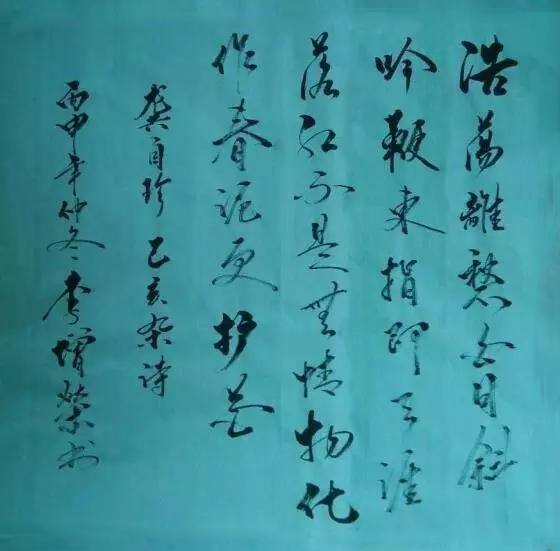 浩荡離愁白日斜
吟鞭東指即天涯
落红不是無情物化
作春泥更护花
龚自珍 己亥杂诗
丙申年仲冬李增榮书